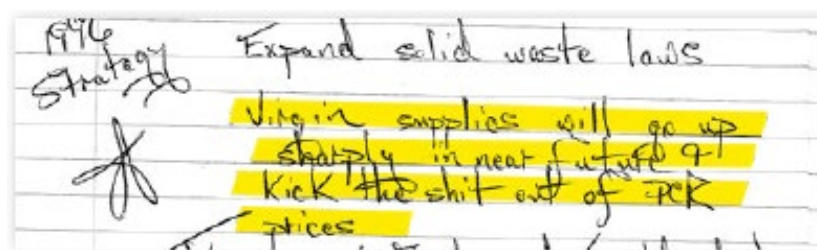 1996
Strategy
Expand solid waste laws
Virgin supplies will go up
sharply in near future &
kick the shit out of PCR
prices